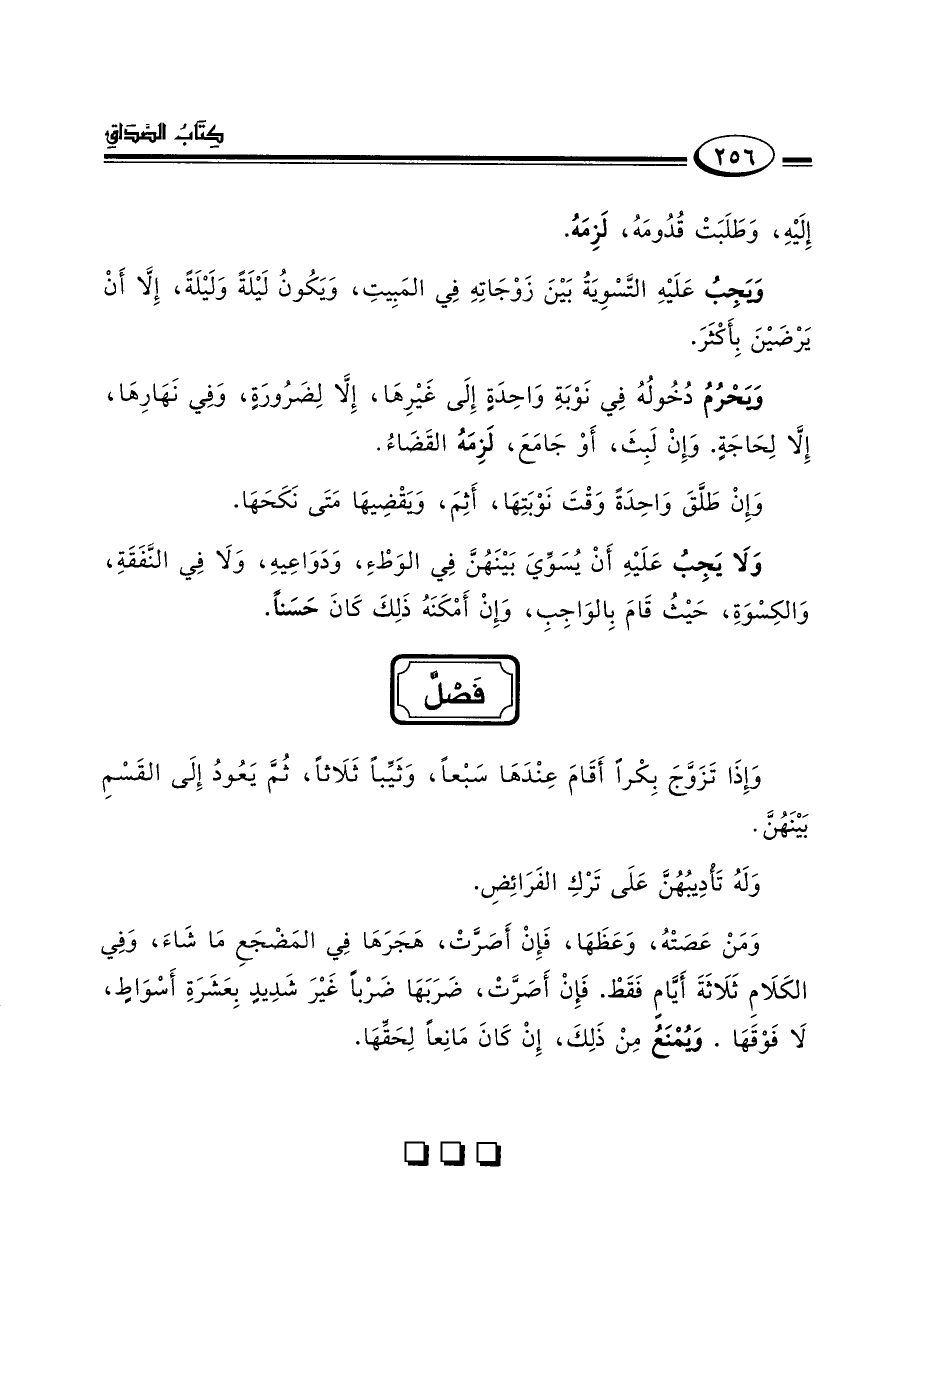 كِتَابُ الصَّدَاقِ
٢٥٦
إِلَيْهِ، وَطَلَبَتْ قُدُومَهُ، لَزِمَهُ.
وَيَجِبُ عَلَيْهِ التَّسْوِيَةُ بَيْنَ زَوْجَاتِهِ فِي المَبِيتِ، وَيَكُونُ لَيْلَةً وَلَيْلَةً، إِلَّا أَنْ
يَرْضَيْنَ بِأَكْثَرَ.
وَيَحْرُمُ دُخُولُهُ فِي نَوْبَةِ وَاحِدَةٍ إِلَى غَيْرِهَا، إِلَّا لِضَرُورَةٍ، وَفِي نَهَارِهَا،
إِلَّا لِحَاجَةٍ. وَإِنْ لَبِثَ، أَوْ جَامَعَ، لَزِمَهُ القَضَاءُ.
وَإِنْ طَلَّقَ وَاحِدَةً وَقْتَ نَوْبَتِهَا، أَثِمَ، وَيَقْضِيهَا مَتَى نَكَحَهَا.
وَلَا يَجِبُ عَلَيْهِ أَنْ يُسَوِّيَ بَيْنَهُنَّ فِي الوَطْءِ، وَدَوَاعِيهِ، وَلَا فِي النَّفَقَةِ،
وَالكِسْوَةِ، حَيْثُ قَامَ بِالوَاجِبِ، وَإِنْ أَمْكَنَهُ ذَلِكَ كَانَ حَسَناً.
فَصْلٌ
وَإِذَا تَزَوَّجَ بِكْراً أَقَامَ عِنْدَهَا سَبْعاً، وَثَيِّباً ثَلَاثاً، ثُمَّ يَعُودُ إِلَى القَسْمِ
بَيْنَهُنَّ.
وَلَهُ تَأْدِيبُهُنَّ عَلَى تَرْكِ الفَرَائِضِ.
وَمَنْ عَصَتْهُ، وَعَظَهَا، فَإِنْ أَصَرَّتْ، هَجَرَهَا فِي المَضْجَعِ مَا شَاءَ، وَفِي
الكَلَامِ ثَلَاثَةَ أَيَّامٍ فَقَطْ. فَإِنْ أَصَرَّتْ، ضَرَبَهَا ضَرْباً غَيْرَ شَدِيدٍ بِعَشَرَةِ أَسْوَاطٍ،
لَا فَوْقَهَا . وَيُمْنَعُ مِنْ ذَلِكَ، إِنْ كَانَ مَانِعاً لِحَقِّهَا.